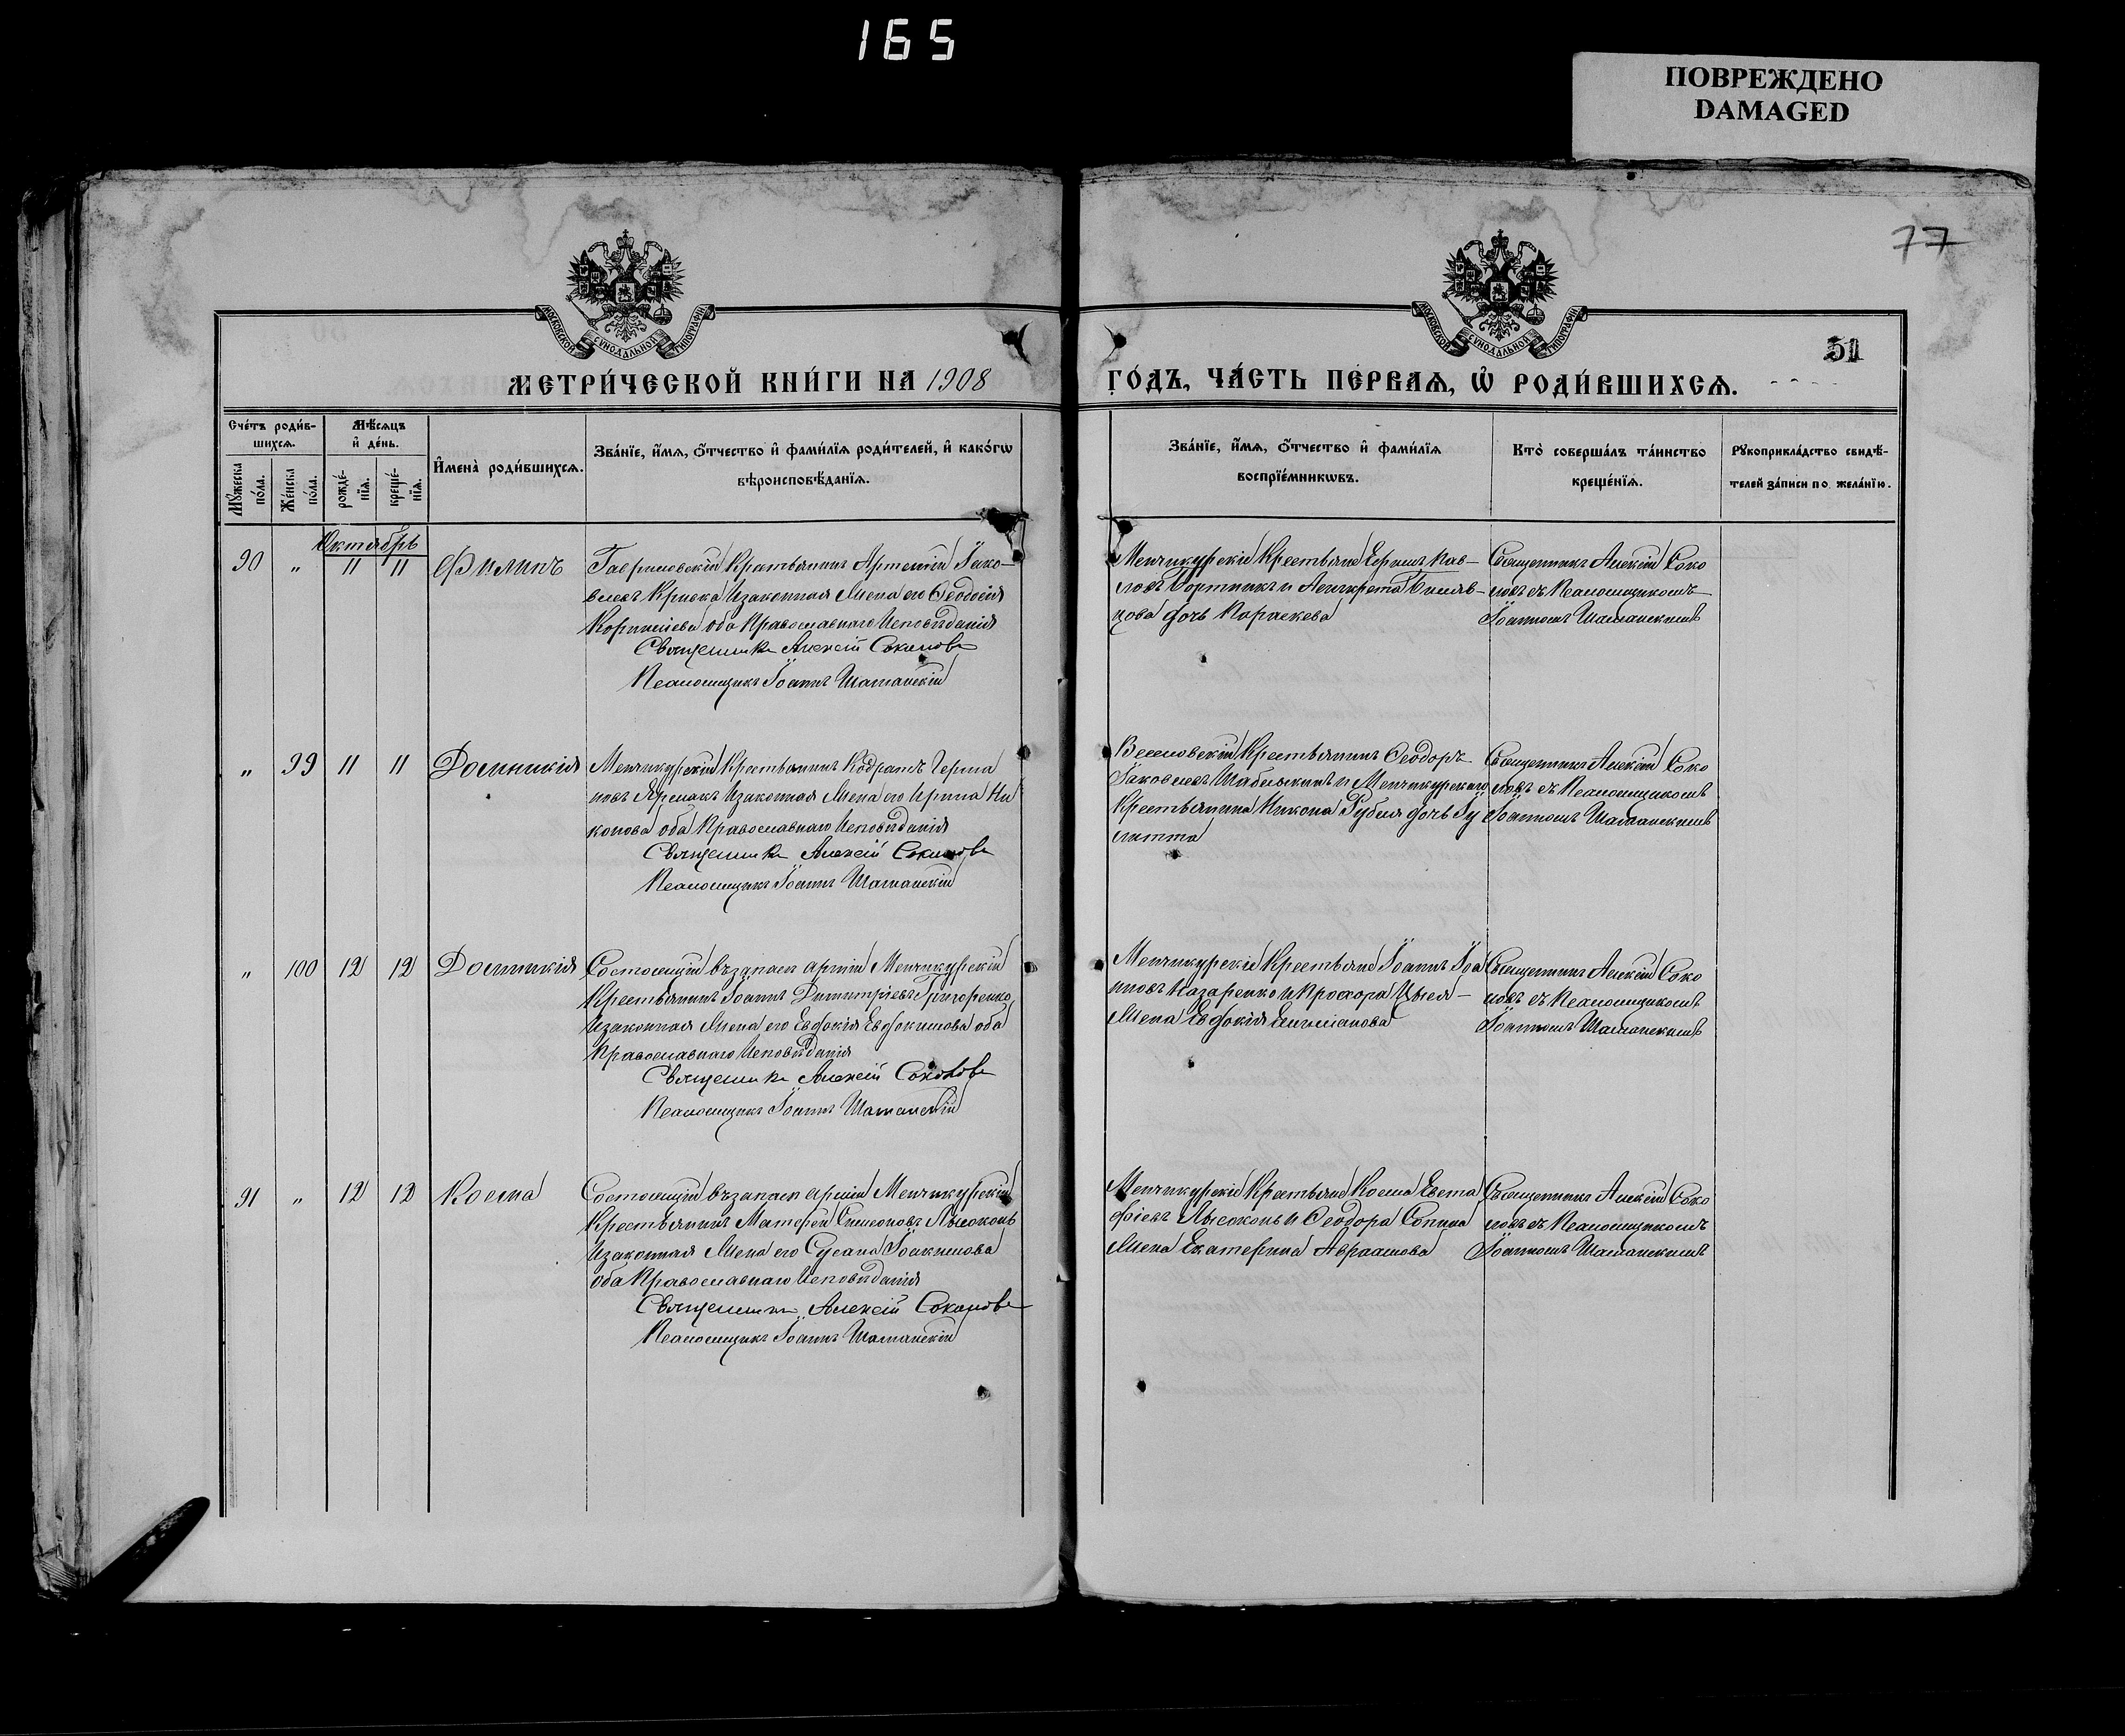 165
ПОВРЕЖДЕНО
DAMAGED
77
МОСКОВСКОЙ СѴНОДАЛЬНОЙ ТИПОГРАФІИ
МОСКОВСКОЙ СѴНОДАЛЬНОЙ ТИПОГРАФІИ
51
МЕТРИ́ЧЕСКОЙ КНИ́ГИ НА 1908
ГО́ДЪ, ЧА́СТЬ ПЕ́РВАѦ, Ѡ҆ РОДИ́ВШИХСѦ.
Сче́тъ роди́в-
шихсѧ.
Мꙋ́жеска по́ла.
Же́нска по́ла.
Мѣ́сѧцъ
и҆ де́нь.
рожде́-нїѧ.
креще́-нїѧ.
И҆мена̀ роди́вшихсѧ.
Зва́нїе, и҆́мѧ, ѻ҆́тчество и҆ фами́лїѧ роди́телей, и҆ како́гѡ
вѣроисповѣ́данїѧ.
Зва́нїе, и҆́мѧ, ѻ҆́тчество и҆ фами́лїѧ
воспрїе́мникѡвъ.
Кто̀ соверша́лъ та́инство
креще́нїѧ.
Рꙋкоприкла́дство свидѣ́-
телей за́писи по жела́нїю.
Октябрь
90 " 11 11 Филипъ
Гавриловскій Крестьянинъ Артемій Іако-
влевъ Кривка И законная Жена его Ѳеодосія
Корнилиева оба Православнаго Исповѣданія
Священникъ Алексій Соколовъ
Псаломщикъ Іоаннъ Шаманскій
Менчикурскіе Крестьяне Ефимъ Пав-
ловъ Бортникъ и
дочь Параскева
Священникъ Алексій Соко
ловъ съ Псаломщикомъ
Іоанномъ Шаманскимъ
" 99 11 11 Домникія
Менчикурскій Крестьянинъ Кодратъ Герма
новъ Ярмакъ И законная Жена его Ирина Ни
конова оба Православнаго Исповѣданія
Священникъ Алексій Соколовъ
Псаломщикъ Іоаннъ Шаманскій
Веселовскій Крестьянинъ Ѳеодоръ
Іаковлевъ Шабельникъ и Менчикурскаго
Крестьянина Никона Рубля дочь Іу
литта
Священникъ Алексій Соко
ловъ съ Псаломщикомъ
Іоанномъ Шаманскимъ
" 100 12 12 Домникія
Состоящій въ запасѣ арміи Менчикурскій
Крестьянинъ Іоаннъ Димитріевъ Григоренко
И законная Жена его Евдокія Евдокимова оба
Православнаго Исповѣданія
Священникъ Алексій Соколовъ
Псаломщикъ Іоаннъ Шаманскій
Менчикурскіе Крестьяне Іоаннъ Іоа
нновъ Назаренко и Прохора
Жена Евдокія
Священникъ Алексій Соко
ловъ съ Псаломщикомъ
Іоанномъ Шаманскимъ
91 " 12 12 Косма
Состоящій въ запасѣ арміи Менчикурскій
Крестьянинъ Матфей Симеоновъ Лысоконь
И законная Жена его Сусана Іоакимова
оба Православнаго Исповѣданія
Священникъ Алексій Соколовъ
Псаломщикъ Іоаннъ Шаманскій
Менчикурскіе Крестьяне Косма Евста
фіевъ Лысоконь и Ѳеодора Сопина
Жена Екатерина Авраамова
Священникъ Алексій Соко
ловъ съ Псаломщикомъ
Іоанномъ Шаманскимъ